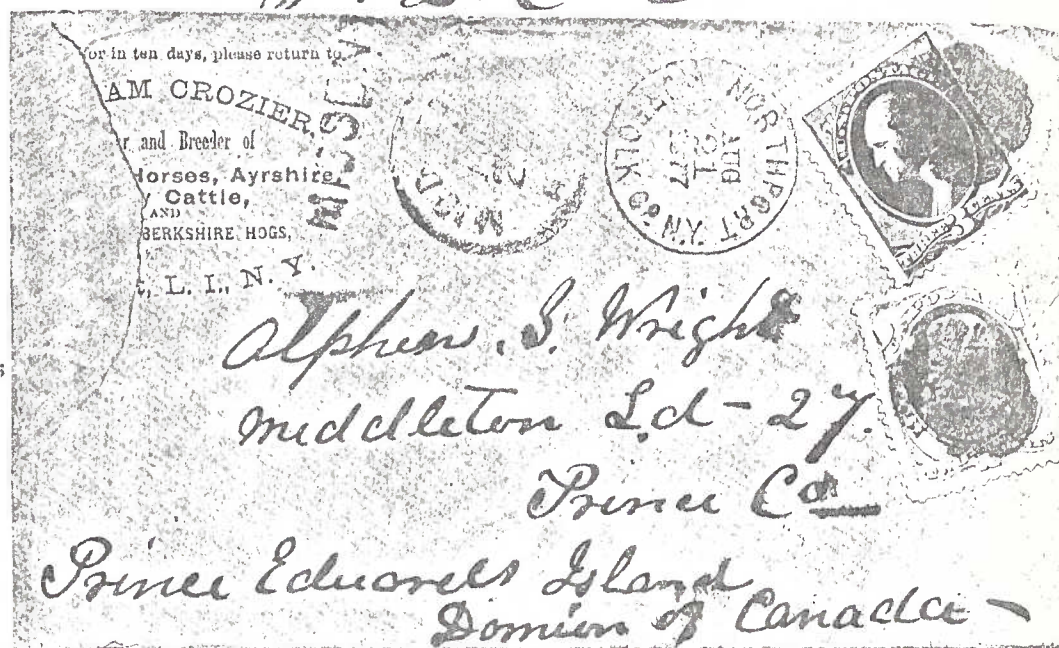 or in ten days, please return to
AM CROZIER,
r and Breeder of
Horses, Ayrshire,
y Cattle,
AND
BERKSHIRE HOGS,
, L. I., N. Y.
NORTHPORT
SUFFOLK CO. N.Y.
AUG
21
Alpheus. I. Wright
Middleton Ld - 27.
Prince Co
Prince Edwards Island
Domion of Canada -